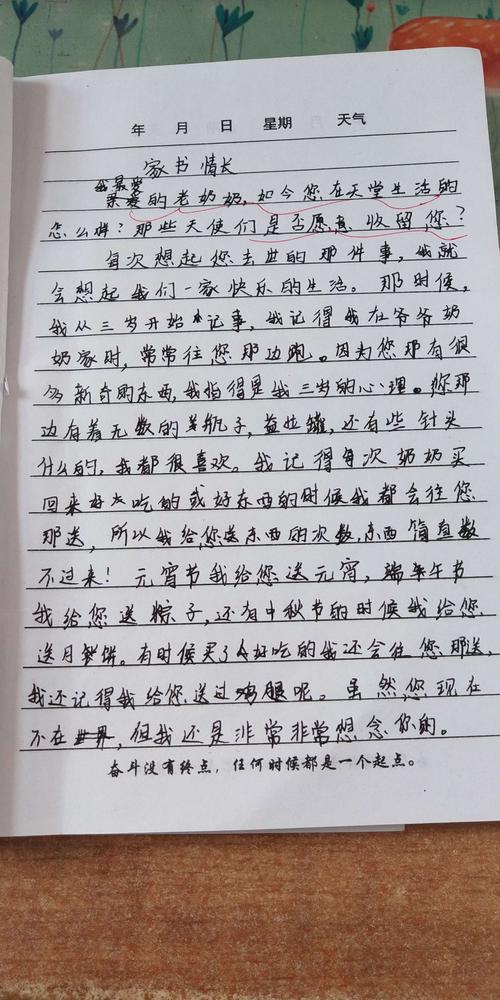 年 月 日 星期 天气
家书情长
我最爱
亲爱的老奶奶，如今您在天堂生活的
怎么样？那些天使们是否愿意收留您？
每次想起您去世的那件事，我就
会想起我们一家快乐的生活。那时候，
我从三岁开始记事，我记得我在爷爷奶
奶家时，常常往您那边跑。因为您那有很
多新奇的东西，我指得是我三岁的心理。您那
边存着无数的姜瓶子，益灶罐，还有些针头
什么的，我都很喜欢。我记得每次奶奶买
回来好点吃的或好东西的时候我都会往您
那送，所以我给您送东西的次数，东西简直数
不过来！元宵节我给您送元宵，端午节
我给您送粽子，还有中秋节的时候我给您
送月饼。有时候买了好吃的我还会往您那送，
我还记得我给您送过鸡腿呢。虽然您现在
不在世界，但我还是非常非常想念你的。
奋斗没有终点，任何时候都是一个起点。